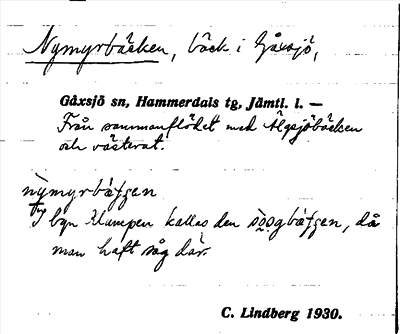 Nymyrbäcken, bäck i Gåxsjö,
Gåxsjö sn, Hammerdals tg, Jämtl. l. —
Från sammanflödet med Älgsjöbäcken
och västerut.
nỳmyrbät́ʃen
I byn Klumpen kallas den sò̥o̥gbät́ʃen, då
man haft såg där.
C. Lindberg 1930.